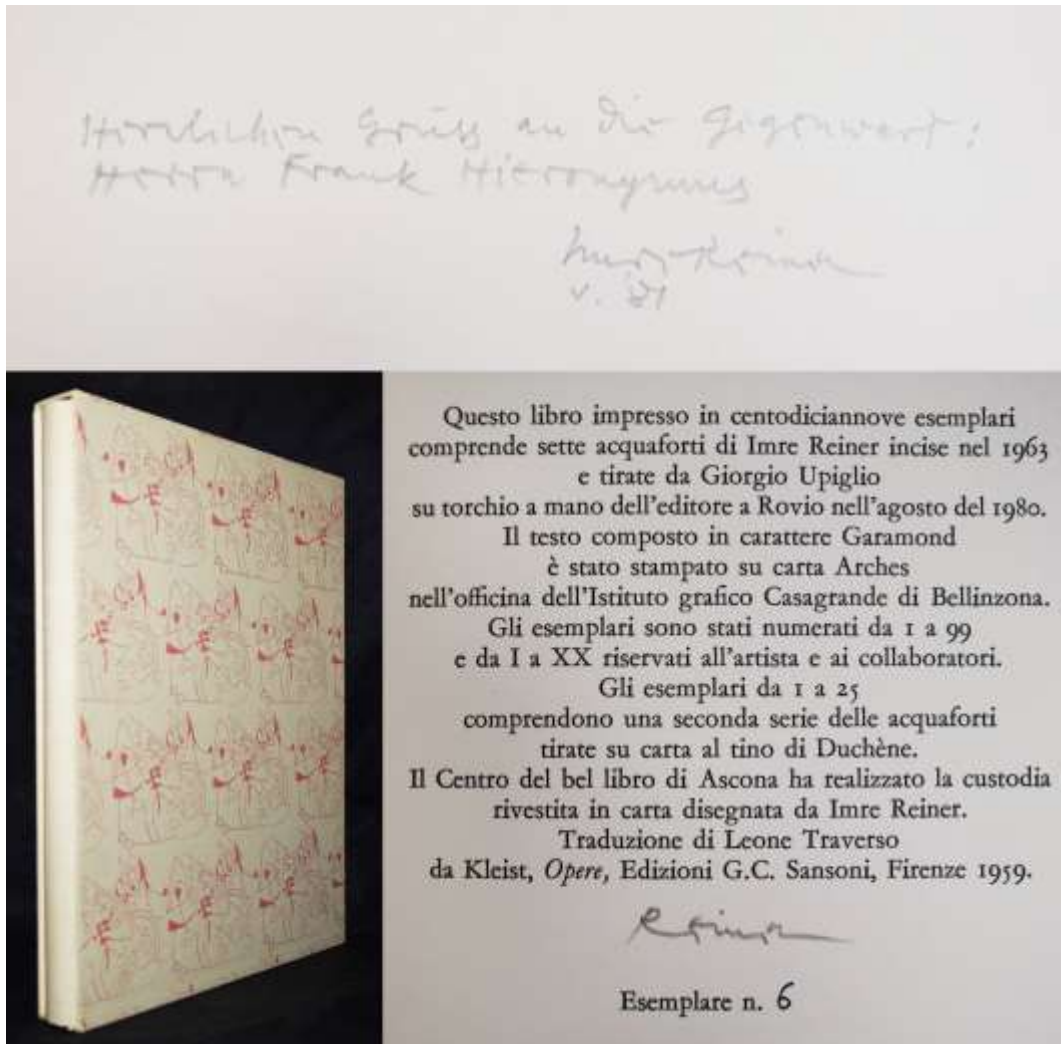 Herzlichen Gruss an die Gegenwart:
Herrn Frank Hieronymus
Imre Reiner
V. 81
Questo libro impresso in centodiciannove esemplari
comprende sette acquaforti di Imre Reiner incise nel 1963
e tirate da Giorgio Upiglio
su torchio a mano dell'editore a Rovio nell'agosto del 1980.
Il testo composto in carattere Garamond
è stato stampato su carta Arches
nell'officina dell'Istituto grafico Casagrande di Bellinzona.
Gli esemplari sono stati numerati da 1 a 99
e da I a XX riservati all'artista e ai collaboratori.
Gli esemplari da 1 a 25
comprendono una seconda serie delle acquaforti
tirate su carta al tino di Duchène.
Il Centro del bel libro di Ascona ha realizzato la custodia
rivestita in carta disegnata da Imre Reiner.
Traduzione di Leone Traverso
da Kleist, Opere, Edizioni G.C. Sansoni, Firenze 1959.
Reiner
Esemplare n. 6